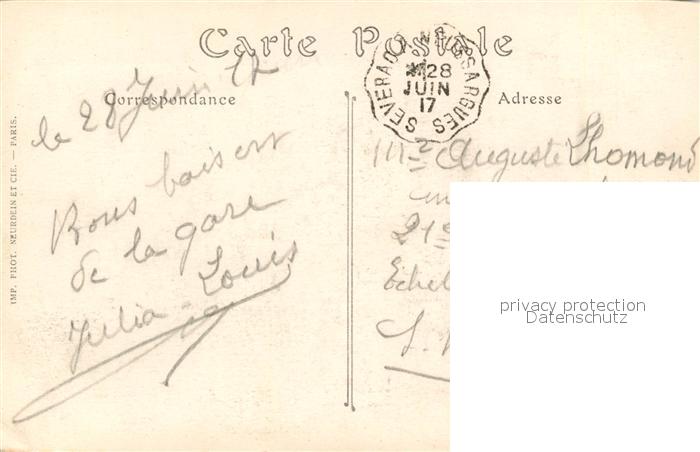 Carte Postale
SEVERAC À NEUSSARGUES
28
JUIN
17
Correspondance
Adresse
le 28 Juin 17
Bons baisers
de la gare
Julia Louis
Auguste Thomond
21e
Echel
IMP. PHOT. NEURDEIN ET CIE. — PARIS.
privacy protection
Datenschutz